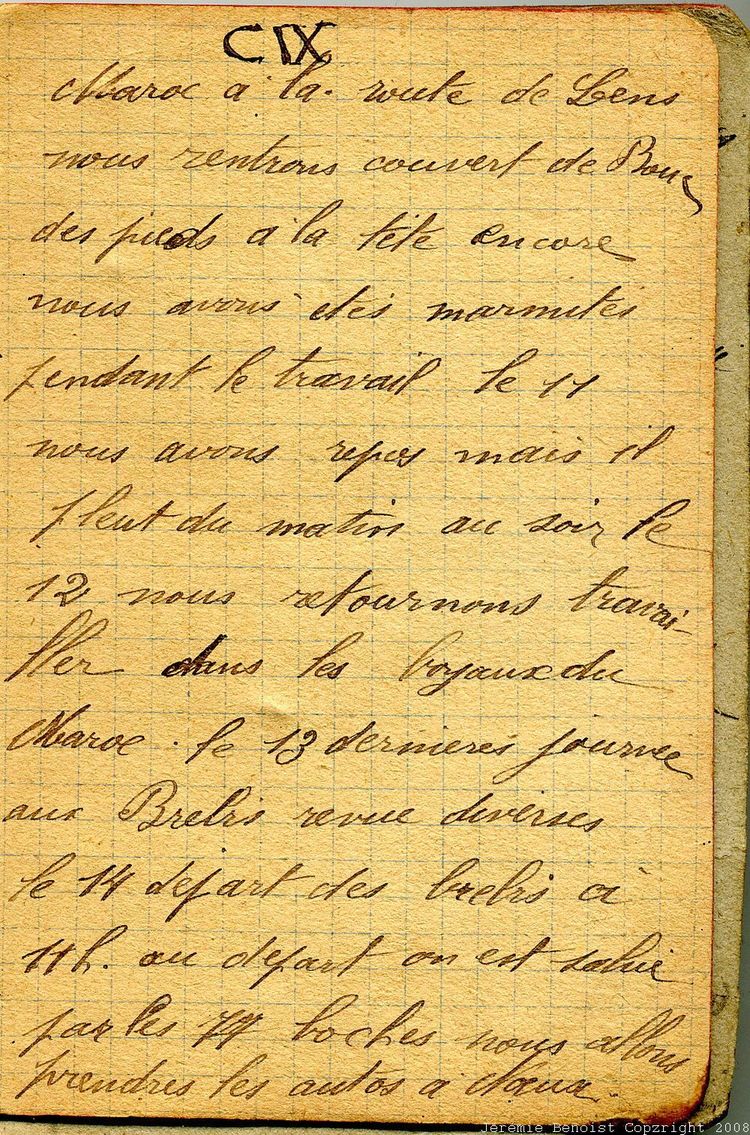 CIX
Maroc a la route de Lens
nous rentrons couvert de Boue
des pieds a la tête encore
nous avons etés marmités
pendant le travail le 11
nous avons repos mais il
pleut du matin au soir le
12 nous retournons travai-
ller dans les boyaux du
Maroc. le 13 dernieres journee
aux Brebis revue diverses
le 14 départ des brebis a
11h. au départ on est salué
par les 77 boches nous allons
prendres les autos a Nœux.
Jeremie Benoist Copzright 2008